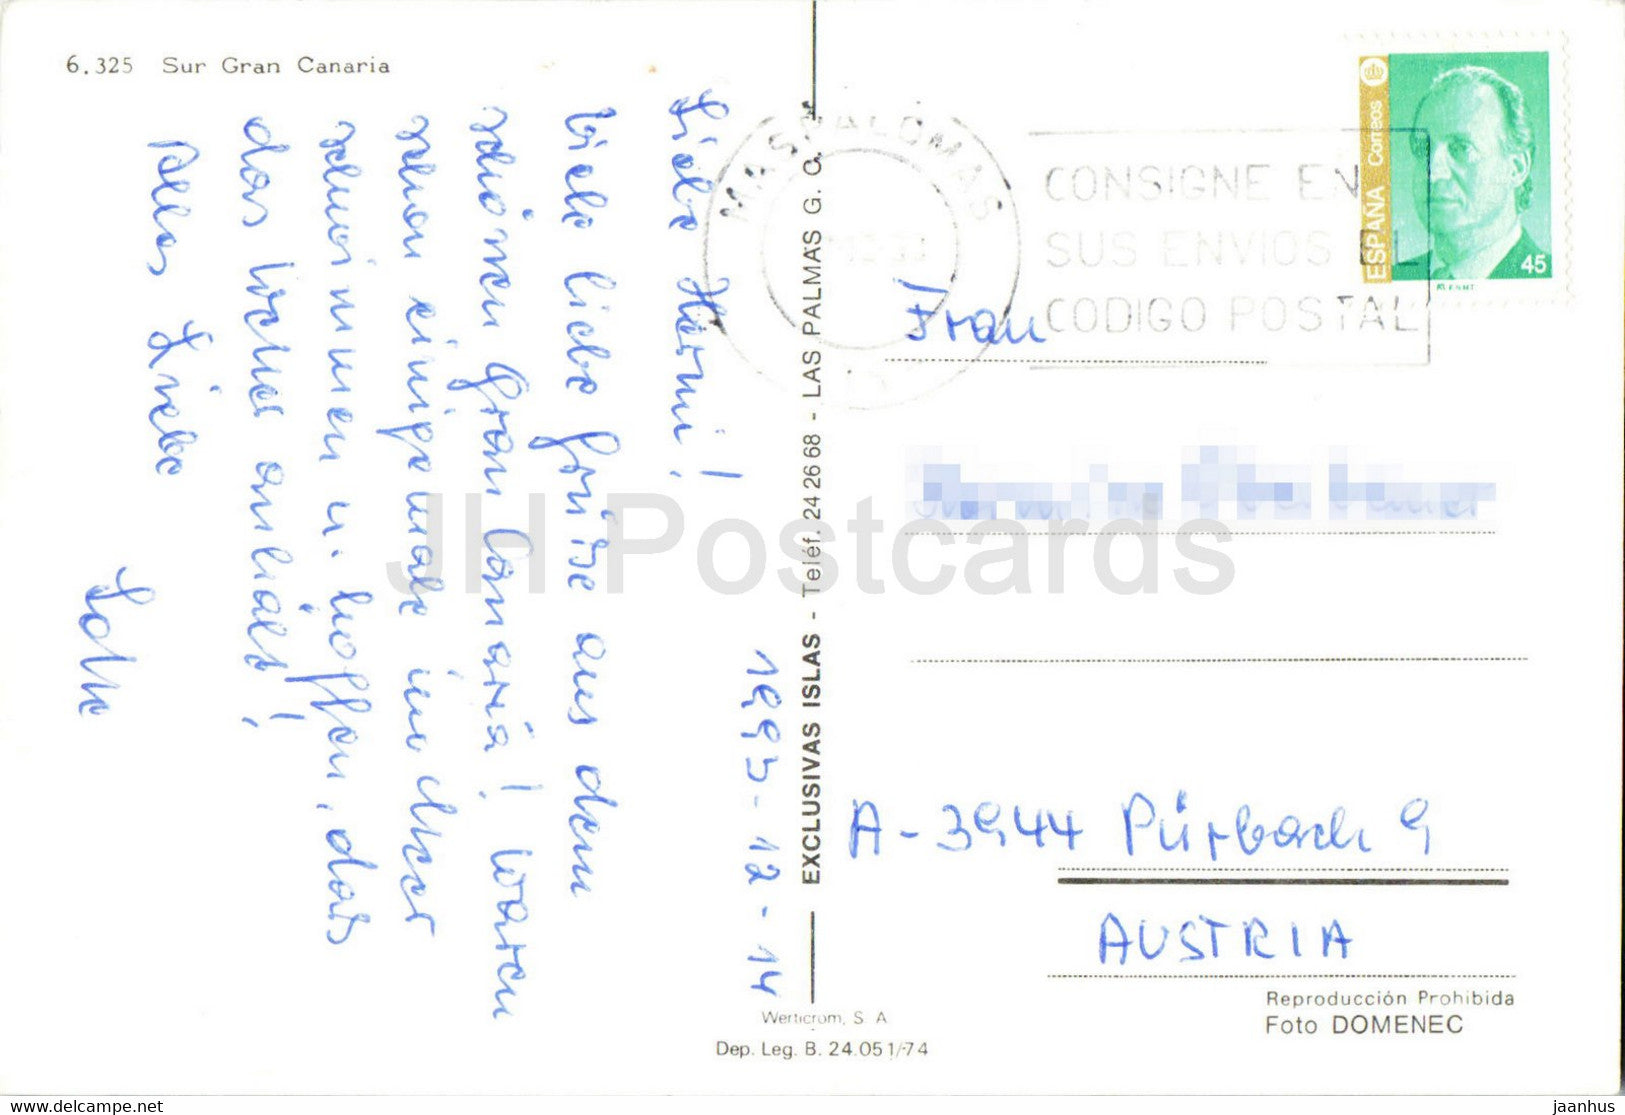 6.325 Sur Gran Canaria
1993-12-14
Liebe Hermi!
Viele liebe Grüsse aus dem
schönen Gran Canaria! Waren
schon einige male im Meer
schwimmen u. hoffen, dass
das Wetter anhält!
Alles Liebe
Lotte
EXCLUSIVAS ISLAS - Teléf. 24 26 68 - LAS PALMAS G. C.
MASPALOMAS
CONSIGNE EN
SUS ENVIOS EL
CODIGO POSTAL
ESPAÑA Correos
45
Frau
A-3944 Pürbach 9
AUSTRIA
Reproducción Prohibida
Foto DOMENEC
Werticrom, S. A.
Dep. Leg. B. 24.051/-74
JH Postcards
delcampe.net
jaanhus